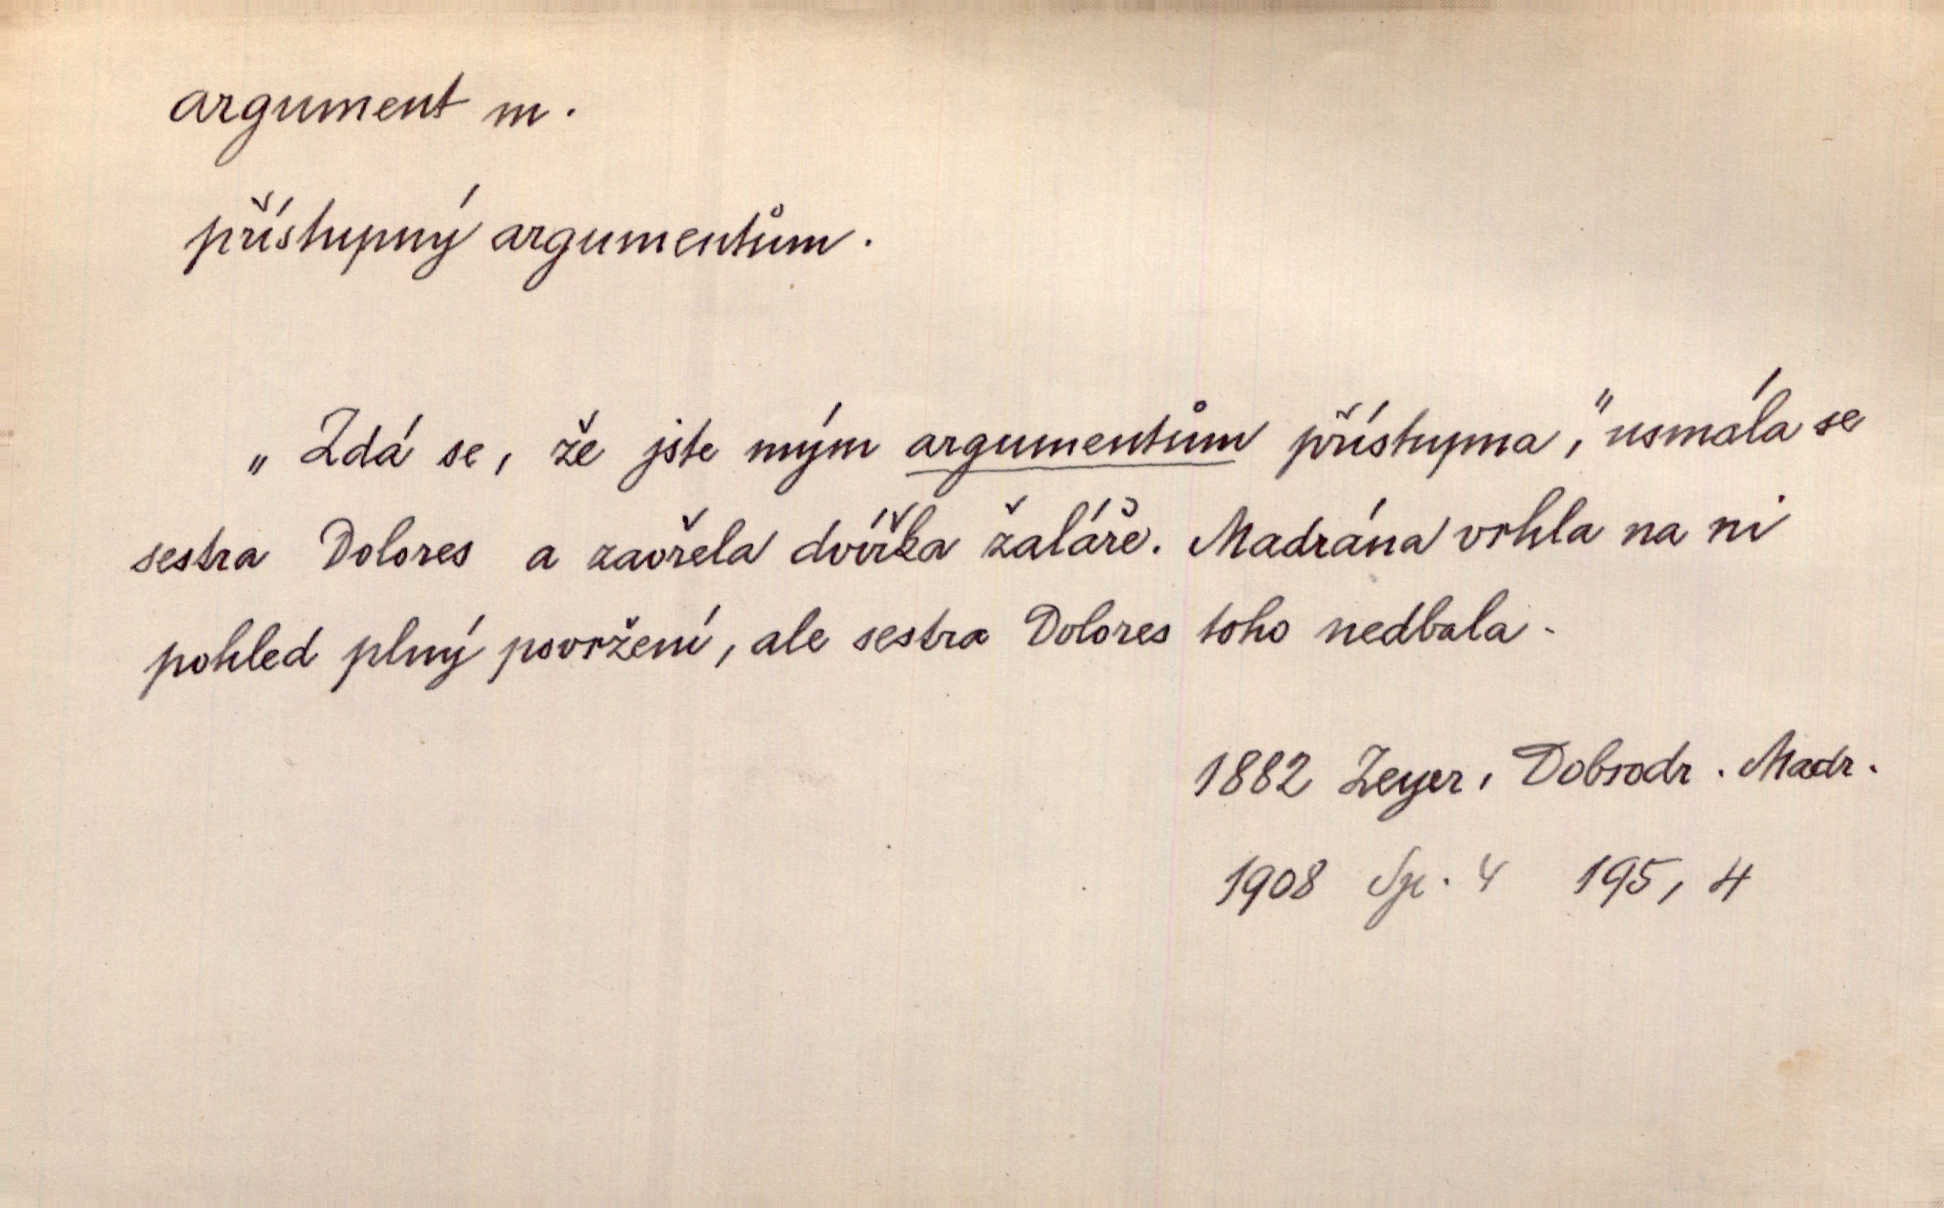 argument m.
přístupný argumentům.
„Zdá se, že jste mým argumentům přístupna," usmála se
sestra Dolores a zavřela dvířka žaláře. Madrána vrhla na ni
pohled plný povržení, ale sestra Dolores toho nedbala.
1882 Zeyer, Dobrodr. Madr.
1908 Sp. 4 195, 4